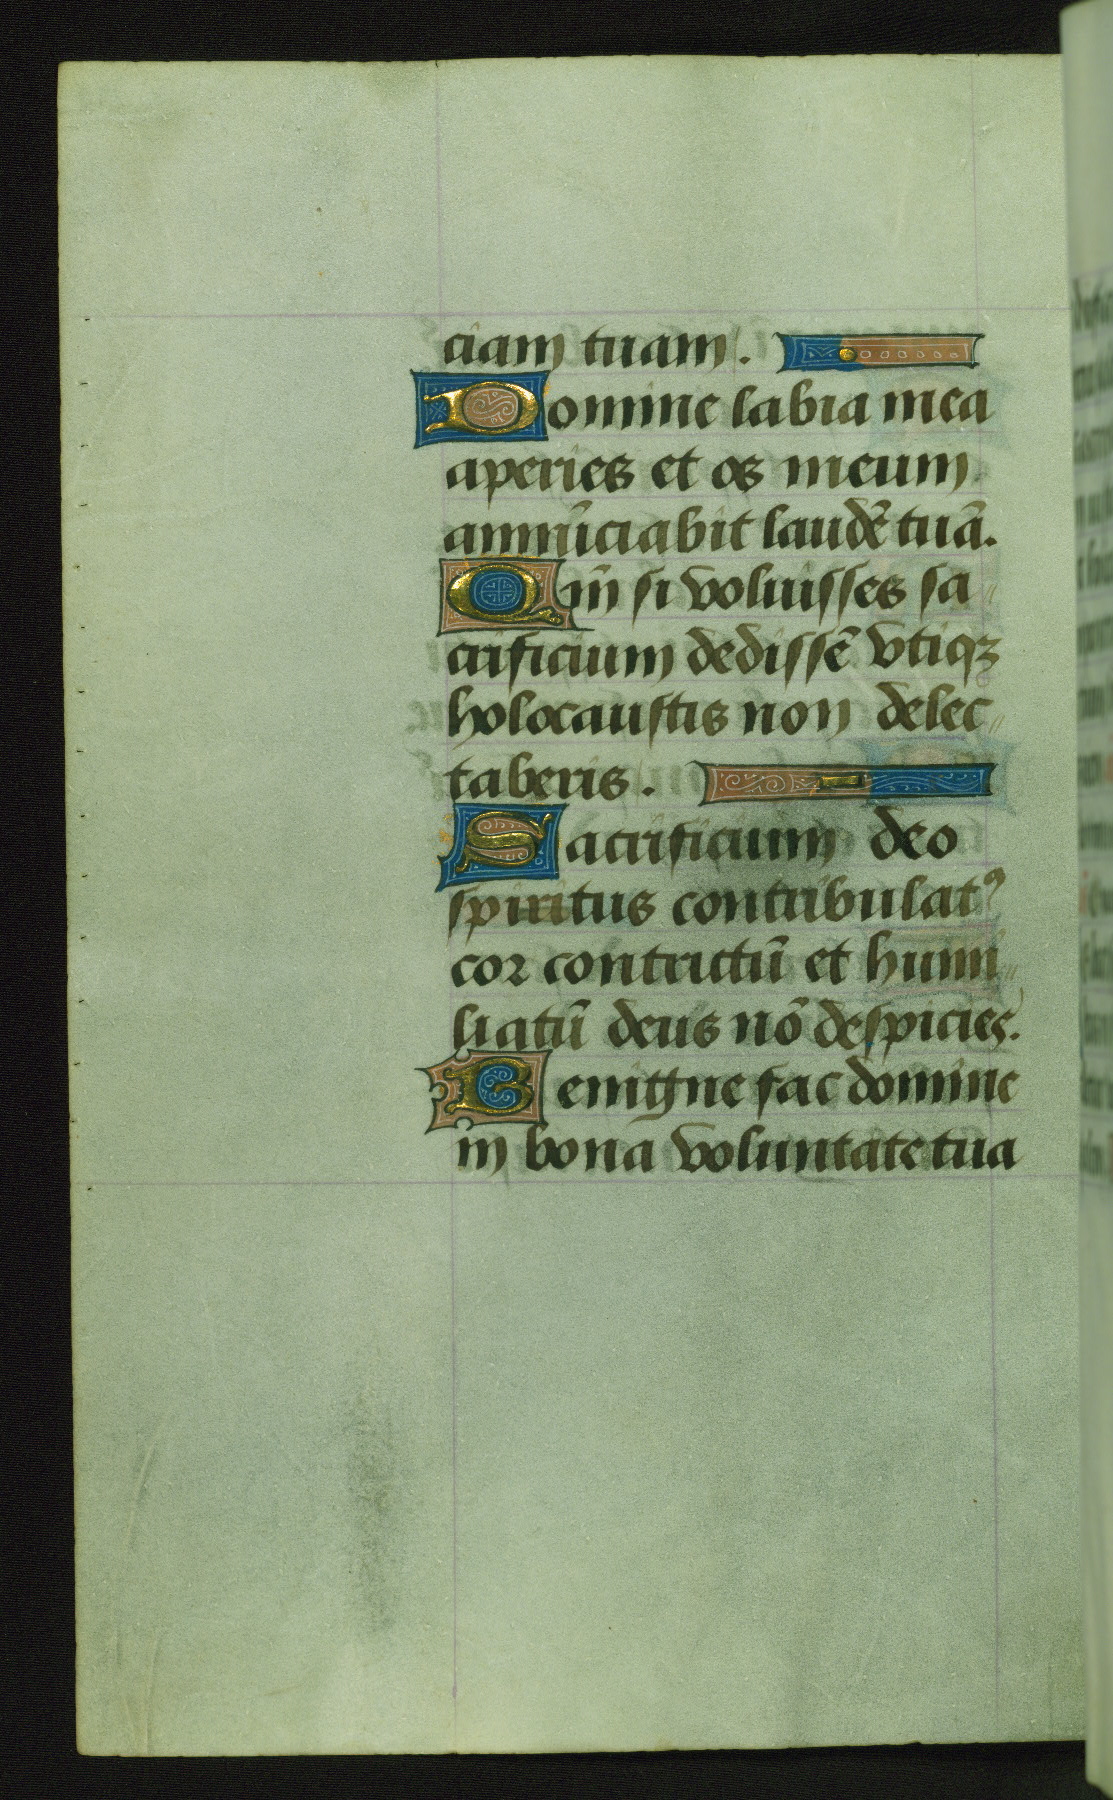 ciam tuam.
Domine labia mea
aperies et os meum
annūciabit laudē tuā.
Qm̄ si voluisses sa
crificium dedissē vtiqꝫ
holocaustis non delec
taberis.
Sacrificium deo
spiritus contribulatꝰ
cor contrictū et humi
liatū deus nō despicies.
Benigne fac domine
in bona voluntate tua